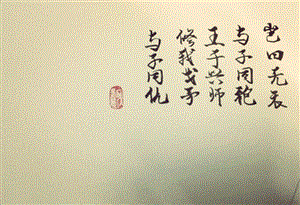 岂曰无衣
与子同袍
王于兴师
修我戈矛
与子同仇